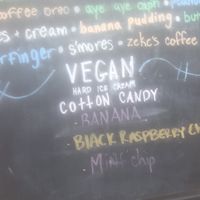 coffee oreo • aye aye cap'n • peanut
es + cream • banana pudding • but
rfinger • s'mores • zeke's coffee
VEGAN
HARD ICE CREAM
COTTON CANDY
- BANANA
- BLACK RASPBERRY CH
- Mint chip